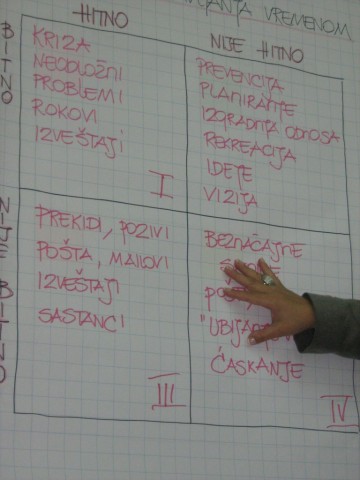 VREMENOM
HITNO
NIJE HITNO
BITNO
KRIZA
NEODLOŽNI
PROBLEMI
ROKOVI
IZVEŠTAJI
I
PREVENCIJA
PLANIRANJE
IZGRADNJA ODNOSA
REKREACIJA
IDEJE
VIZIJA
NIJE BITNO
PREKIDI, POZIVI
POŠTA, MAILOVI
IZVEŠTAJI
SASTANCI
III
BEZNAČAJNE
ĆASKANJE
IV